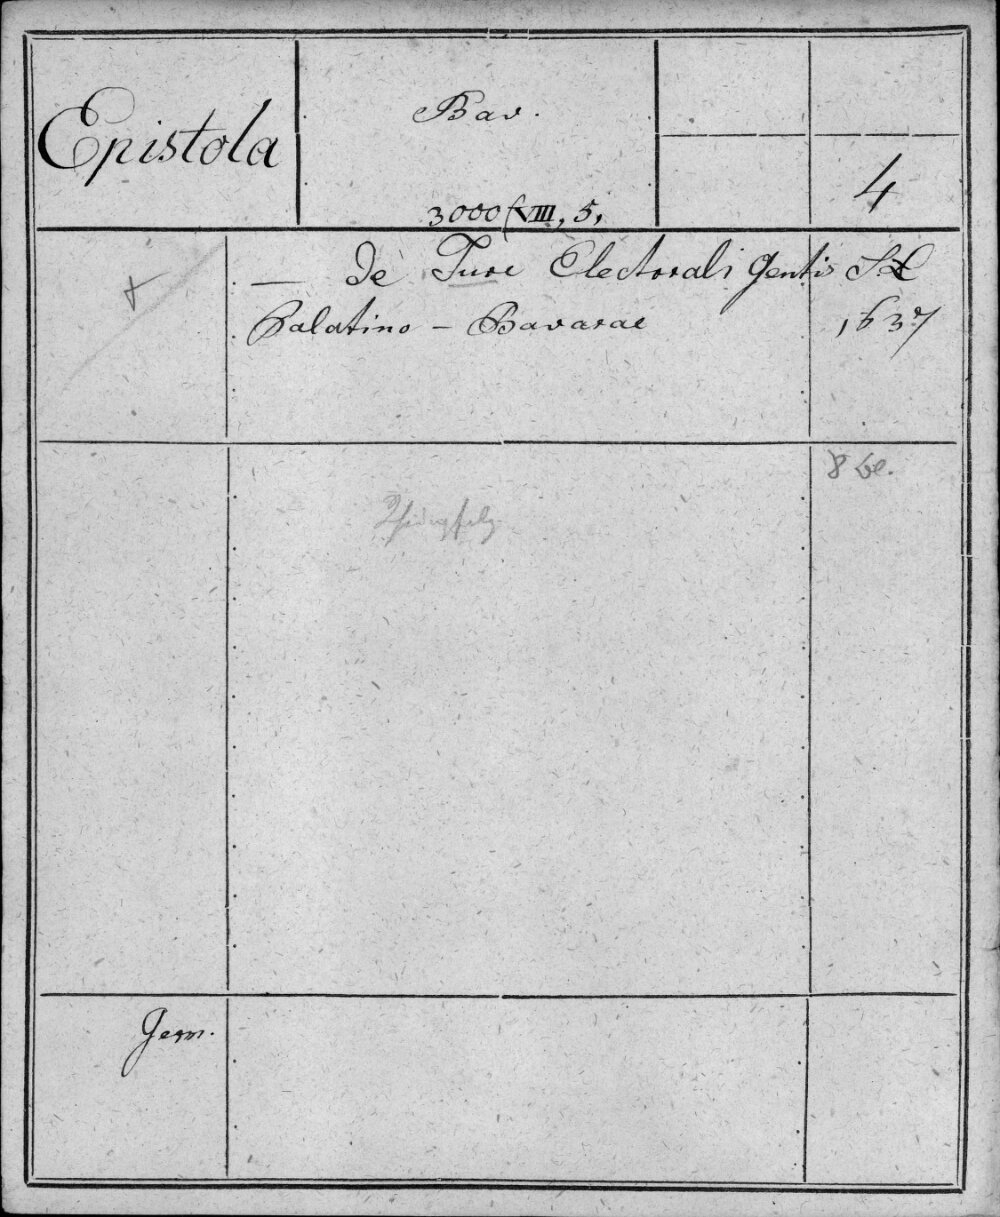 Epistola
Bav.
3000 (VIII, 5,
4
— De Jure Electorali Gentis
Palatino – Bavarae
S L
1637
8 bl.
Germ.